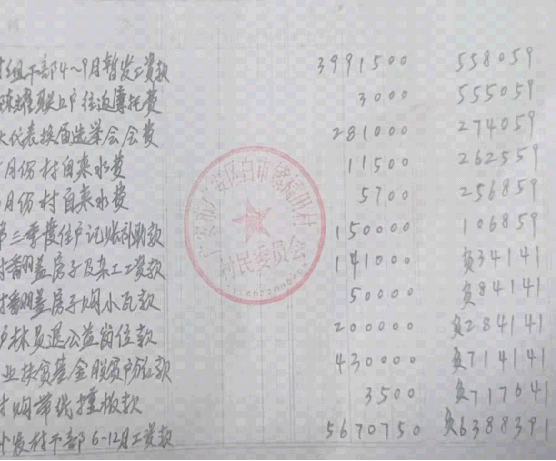 组干部4~9月暂发工资款 3991500 558059
联上户往返摩托费 3000 555059
代表换届选举会会费 281000 274059
月份村自来水费 11500 262559
月份村自来水费 5700 256859
第三季度住户记账补助款 150000 106859
村翻盖房子及杂工工资款 141000 负34141
村翻盖房子购小瓦款 50000 负84141
护林员退公益岗位款 200000 负284141
业扶贫基金股资户分红款 430000 负714141
村购 款 3500 负717641
补发村干部6-12月工资款 5670750 负6388391
广安市广安区白市镇 村
村民委员会